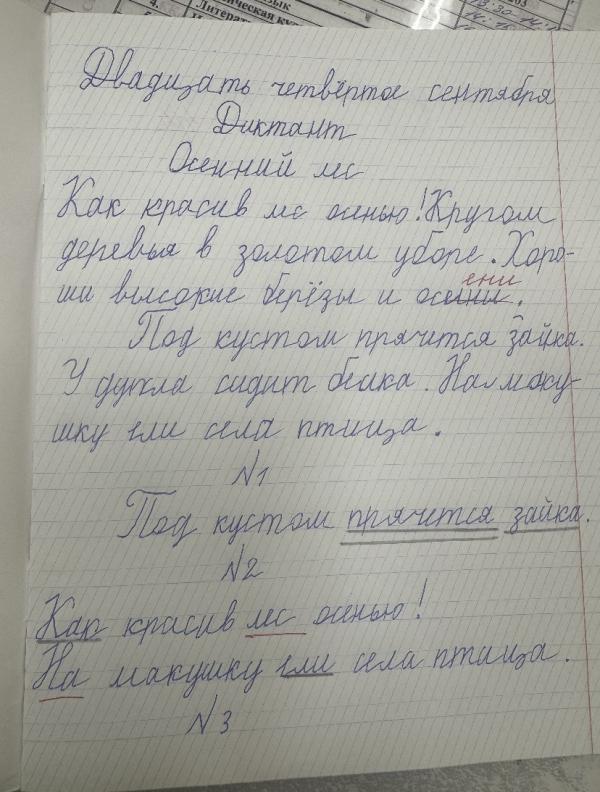 4.
Литерат
Двадцать четвёртое сентября
Диктант
Осенний лес
Как красив лес осенью! Кругом
деревья в золотом уборе. Хоро-
ени
ши высокие берёзы и осини.
Под кустом прячется зайка.
У дупла сидит белка. На маку-
шку ели села птица.
N1
Под кустом прячется зайка.
N2
Как красив лес осенью!
На макушку ели села птица.
N3